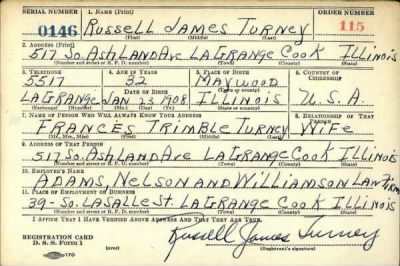 SERIAL NUMBER 1. NAME (Print) ORDER NUMBER
0146 RUSSELL JAMES TURNEY 115
(First) (Middle) (Last)
2. ADDRESS (Print)
517 SO. ASHLAND AVE LAGRANGE COOK ILLINOIS
(Number and street or R. F. D. number) (Town) (County) (State)
3. TELEPHONE 4. AGE IN YEARS 5. PLACE OF BIRTH 6. COUNTRY OF CITIZENSHIP
5517 32 MAYWOOD
DATE OF BIRTH (Town or county)
LAGRANGE JAN 23 1908 ILLINOIS U.S.A
(Exchange) (Number) (Mo.) (Day) (Yr.) (State or country)
7. NAME OF PERSON WHO WILL ALWAYS KNOW YOUR ADDRESS 8. RELATIONSHIP OF THAT PERSON
FRANCES TRIMBLE TURNEY WIFE
(Mr., Mrs., Miss) (First) (Middle) (Last)
9. ADDRESS OF THAT PERSON
517 SO. ASHLAND AVE LAGRANGE COOK ILLINOIS
(Number and street or R. F. D. number) (Town) (County) (State)
10. EMPLOYER'S NAME
ADAMS, NELSON AND WILLIAMSON LAW FIRM
11. PLACE OF EMPLOYMENT OR BUSINESS
39 - SO. LASALLE ST. LAGRANGE COOK ILLINOIS
(Number and street or R. F. D. number) (Town) (County) (State)
I AFFIRM THAT I HAVE VERIFIED ABOVE ANSWERS AND THAT THEY ARE TRUE.
REGISTRATION CARD Russell James Turney
D. S. S. Form 1 (Registrant's signature)